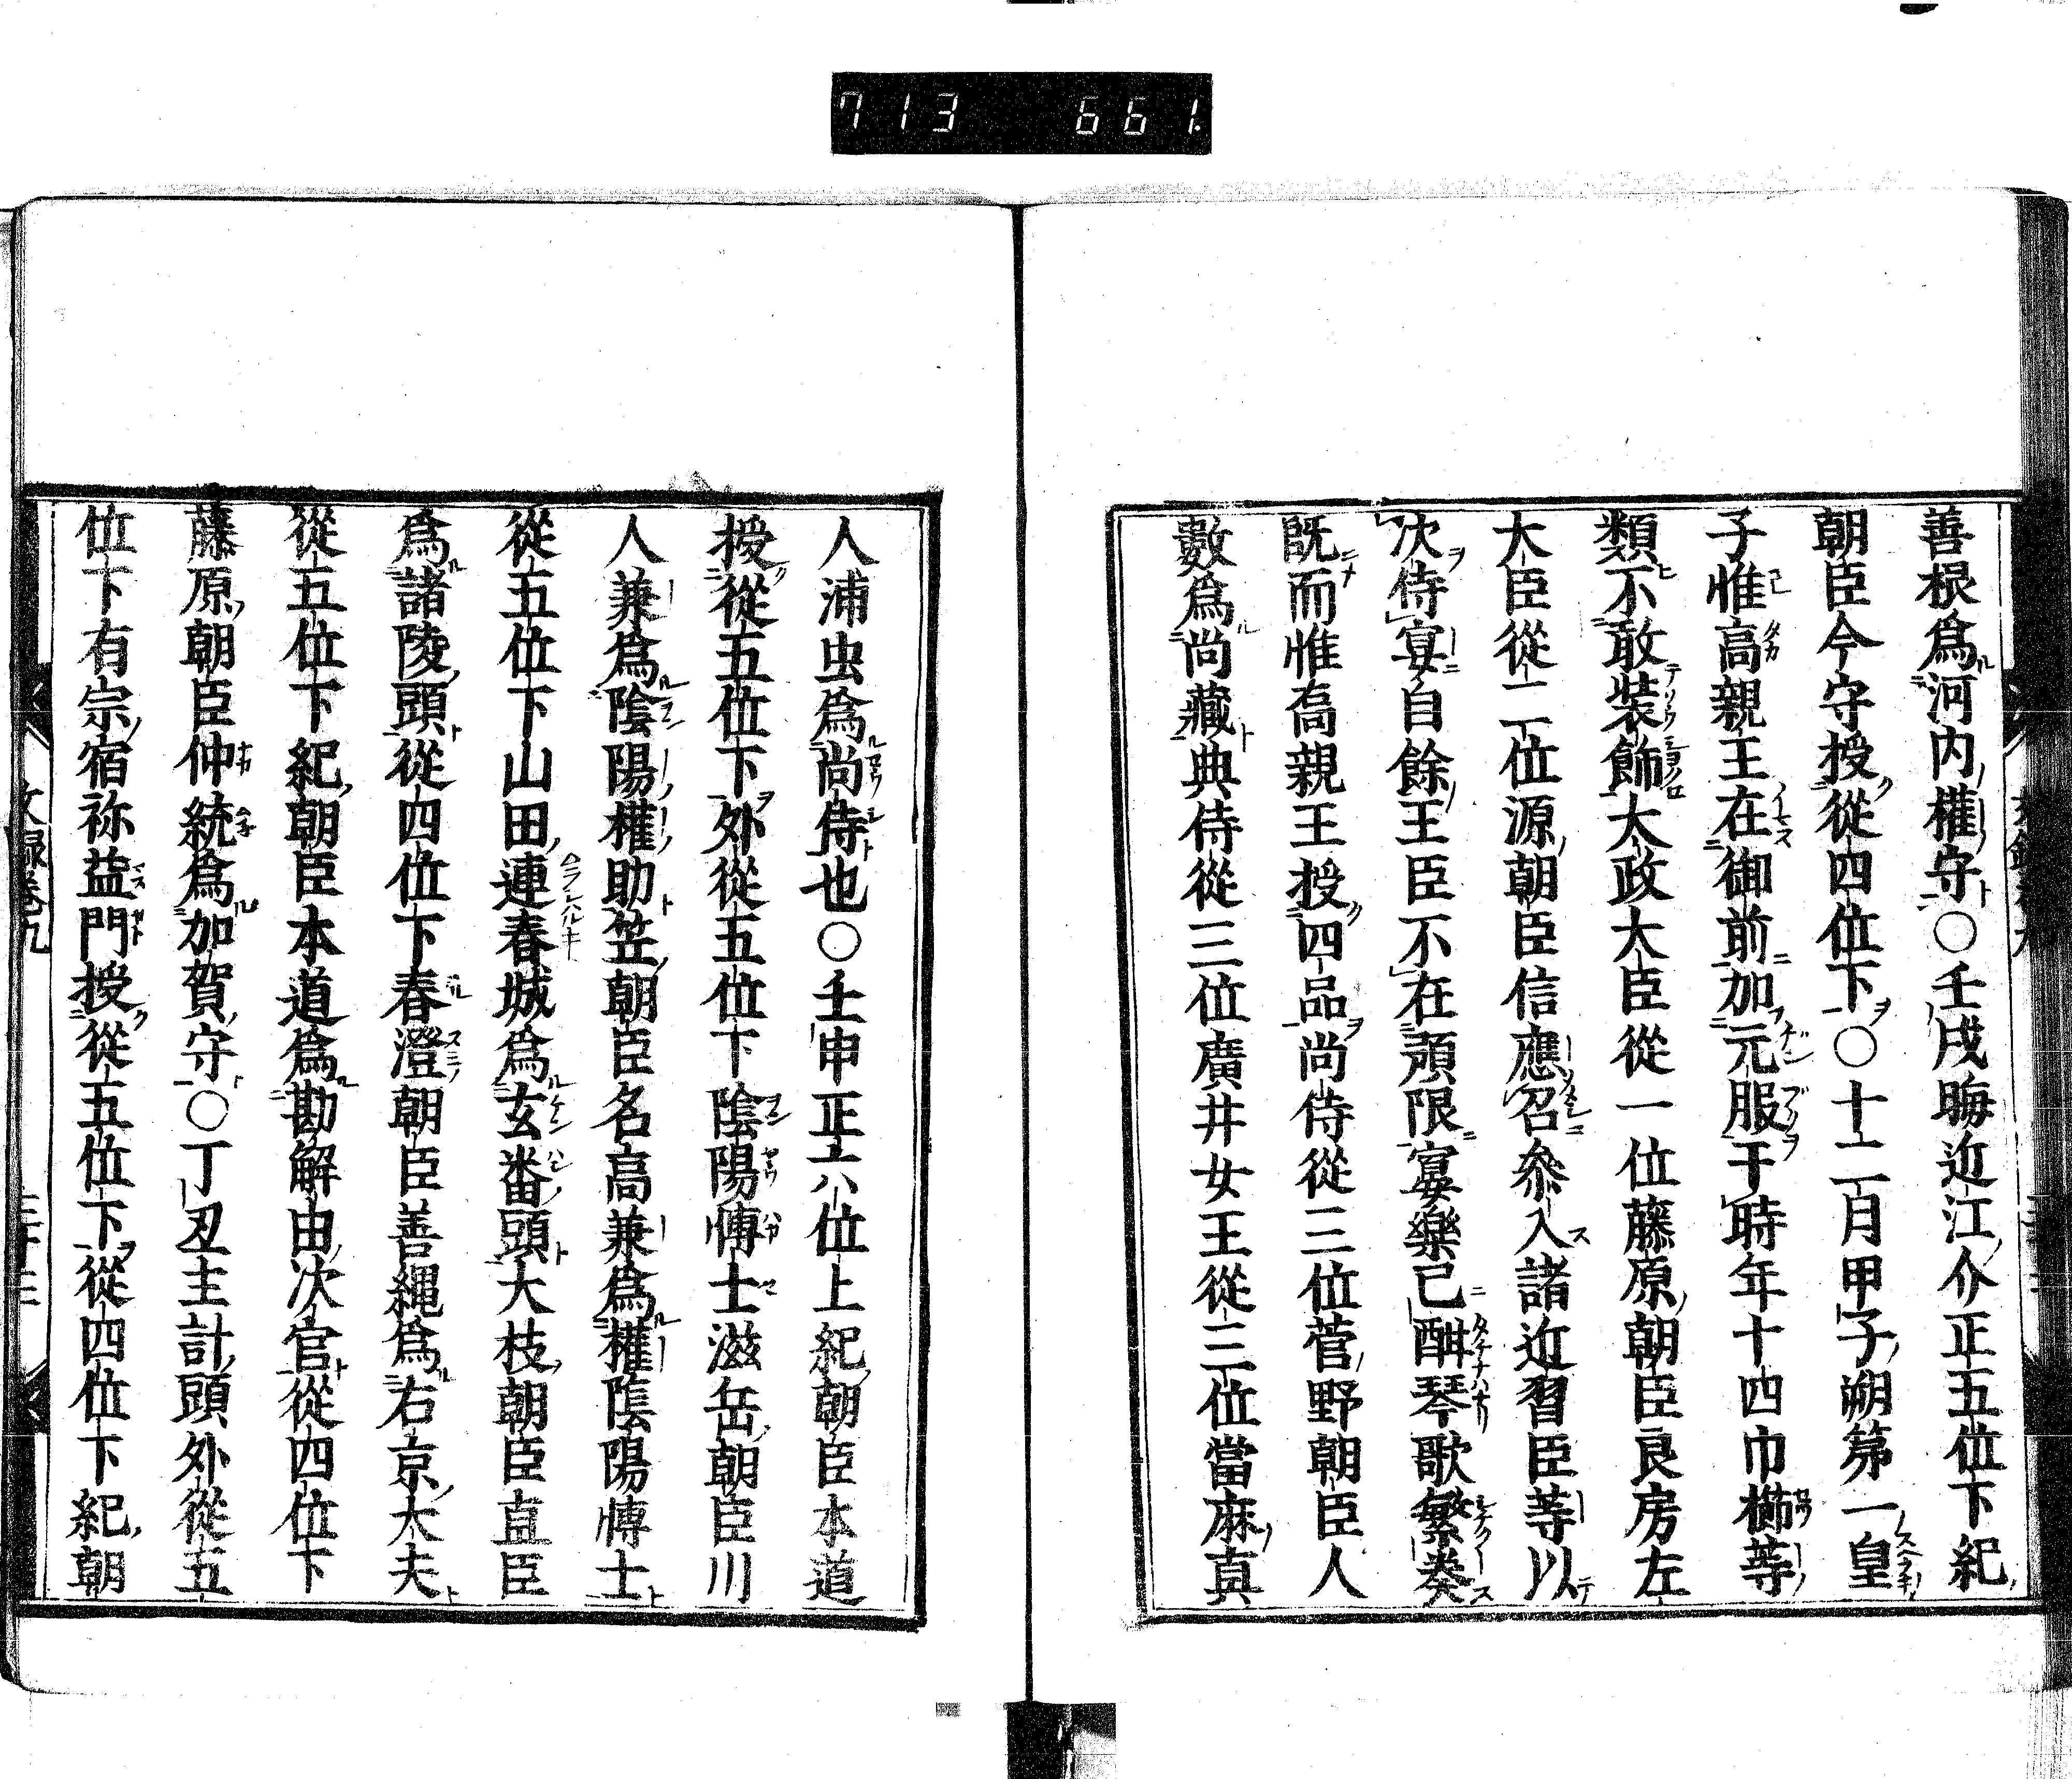 713 661
善根爲河内權守○壬戌晦近江介正五位下紀
朝臣今守授從四位下○十二月甲子朔苐一皇
子惟高親王在御前加元服于時年十四巾櫛等
類不敢裝飾大政大臣從一位藤原朝臣良房左
大臣從二位源朝臣信應召參入諸近習臣等以
次侍宴自餘王臣不在頒限宴樂已酣琴歌繁奏
既而惟喬親王授四品尚侍從三位菅野朝臣人
數爲尚藏典侍從三位廣井女王從三位當麻真
人浦虫爲尚侍也○壬申正六位上紀朝臣本道
授從五位下外從五位下陰陽博士滋岳朝臣川
人兼爲陰陽權助笠朝臣名高兼爲權陰陽博士
從五位下山田連春城爲玄番頭大枝朝臣直臣
爲諸陵頭從四位下春澄朝臣善縄爲右京大夫
從五位下紀朝臣本道爲勘解由次官從四位下
藤原朝臣仲統爲加賀守○丁丑主計頭外從五
位下有宗宿祢益門授從五位下從四位下紀朝
文録卷九